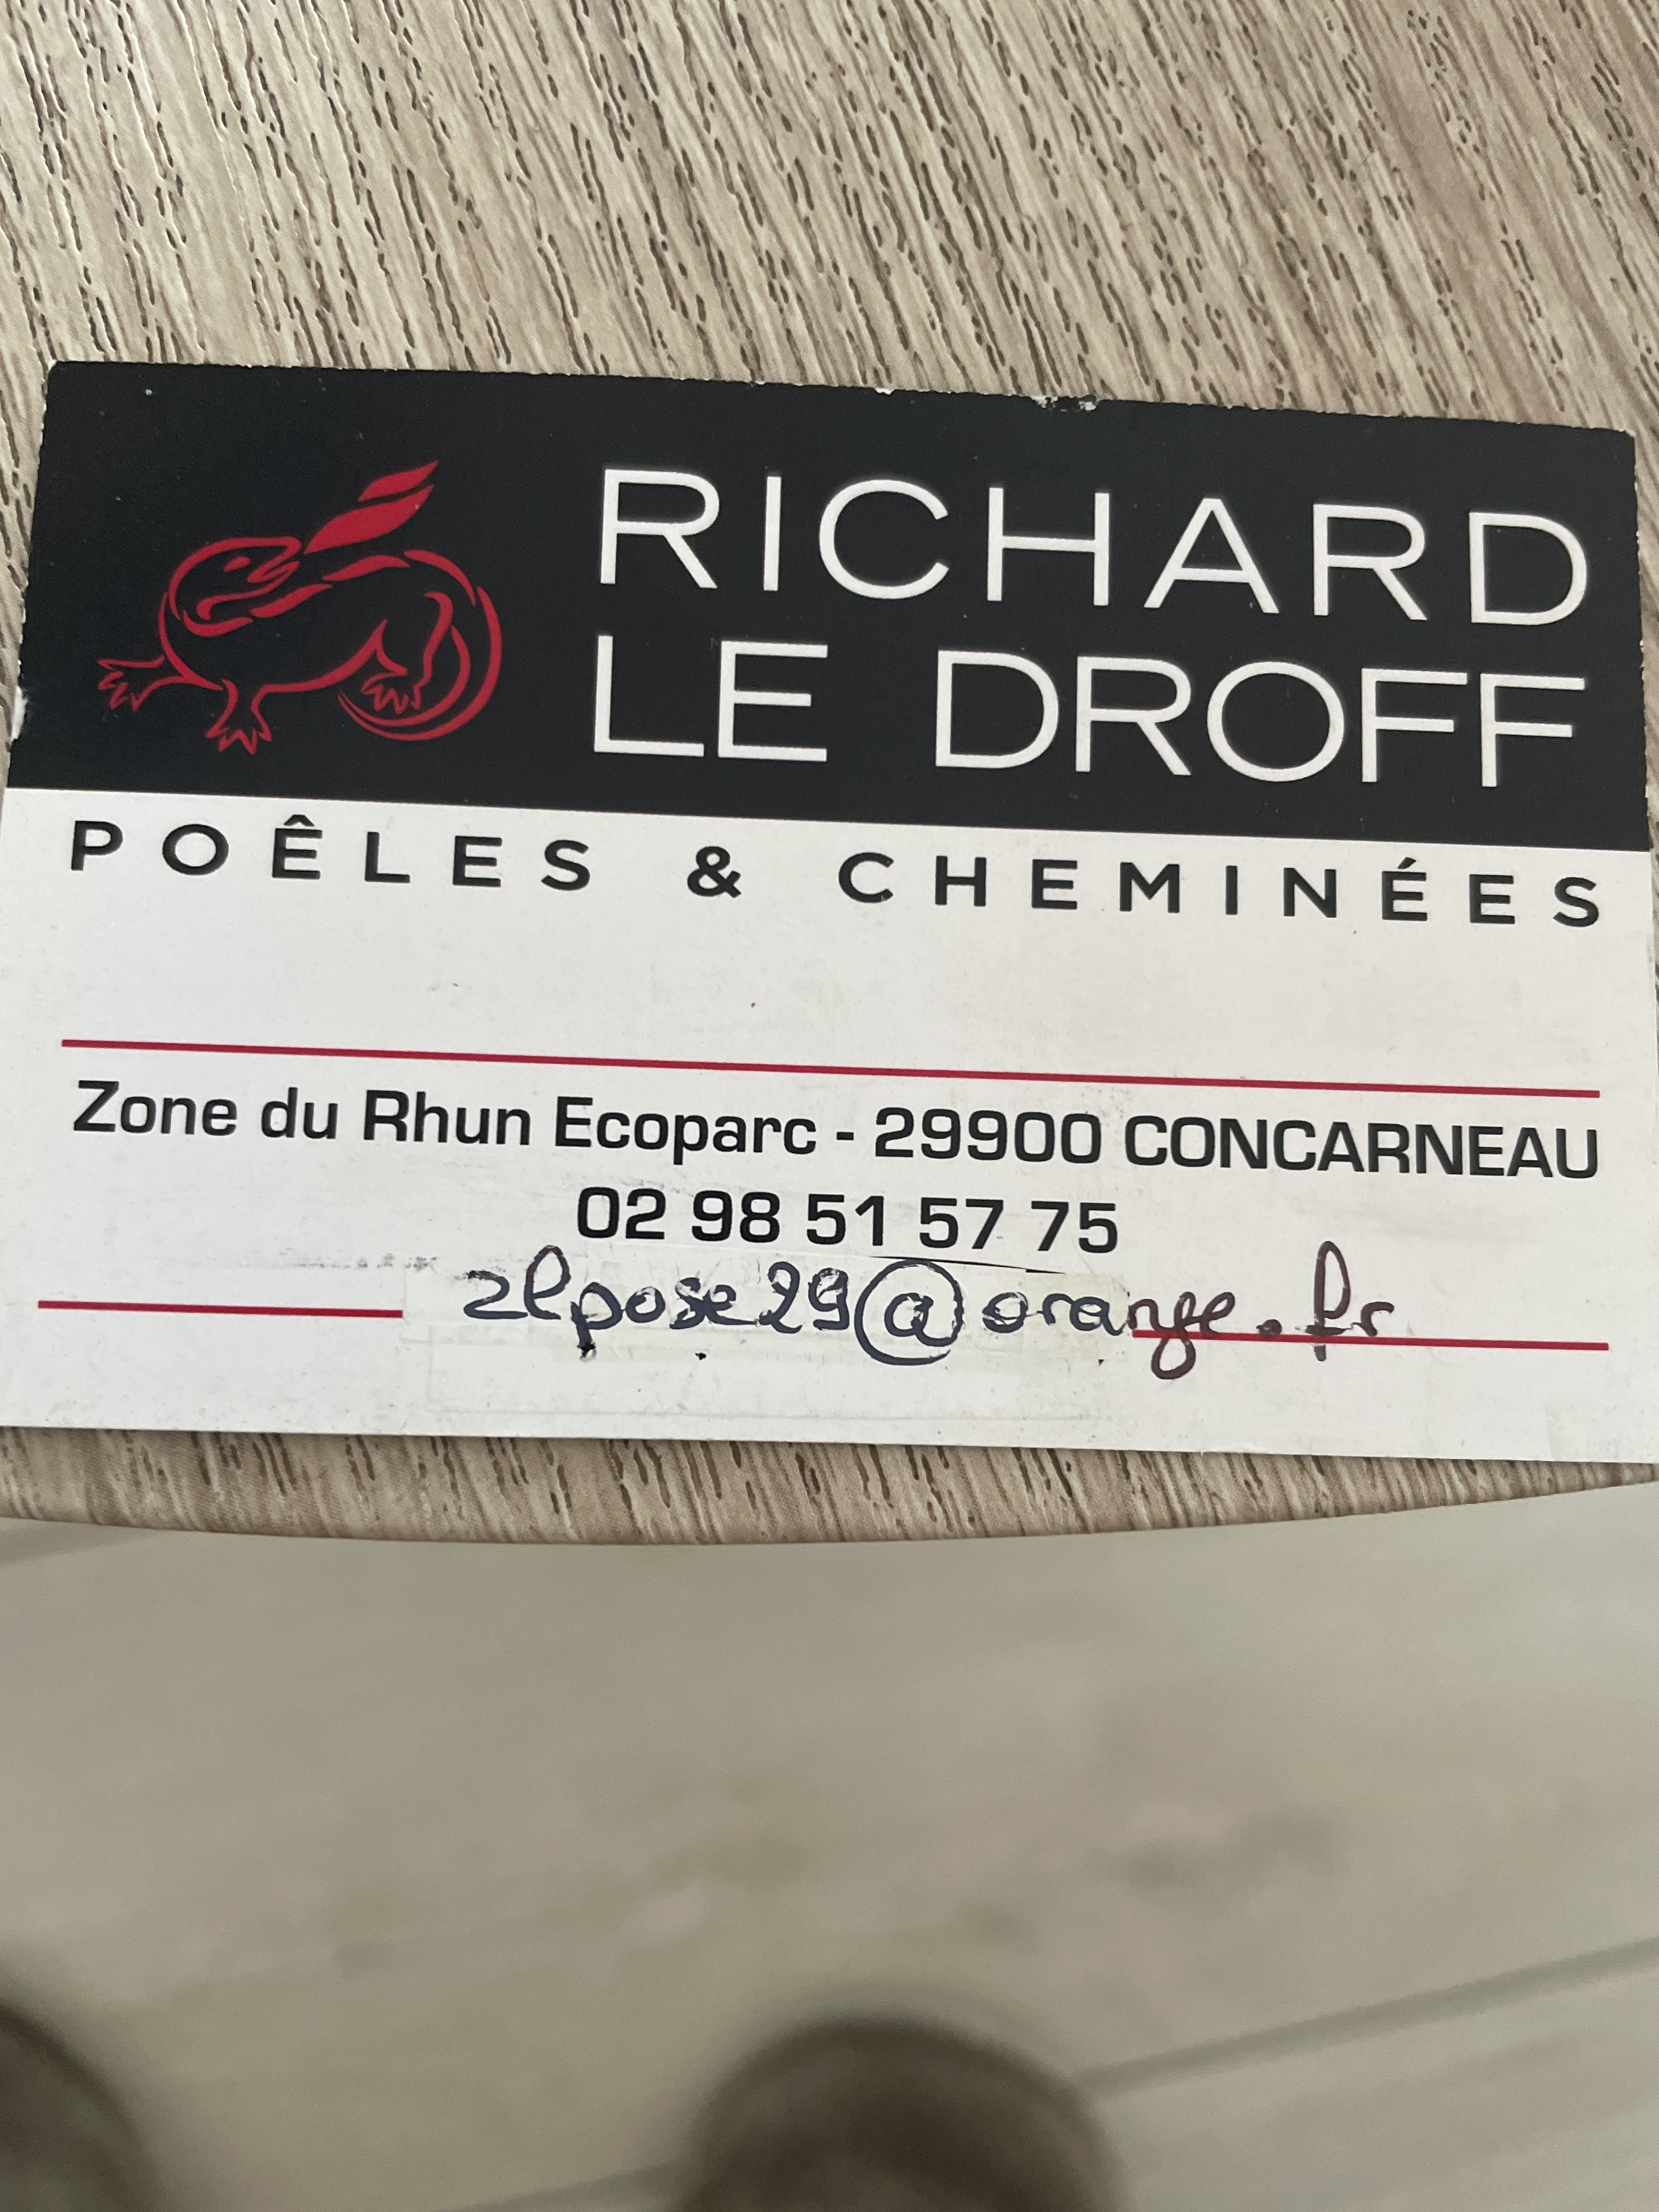 RICHARD
LE DROFF
POÊLES & CHEMINÉES
Zone du Rhun Ecoparc - 29900 CONCARNEAU
02 98 51 57 75
2lpose29@orange.fr